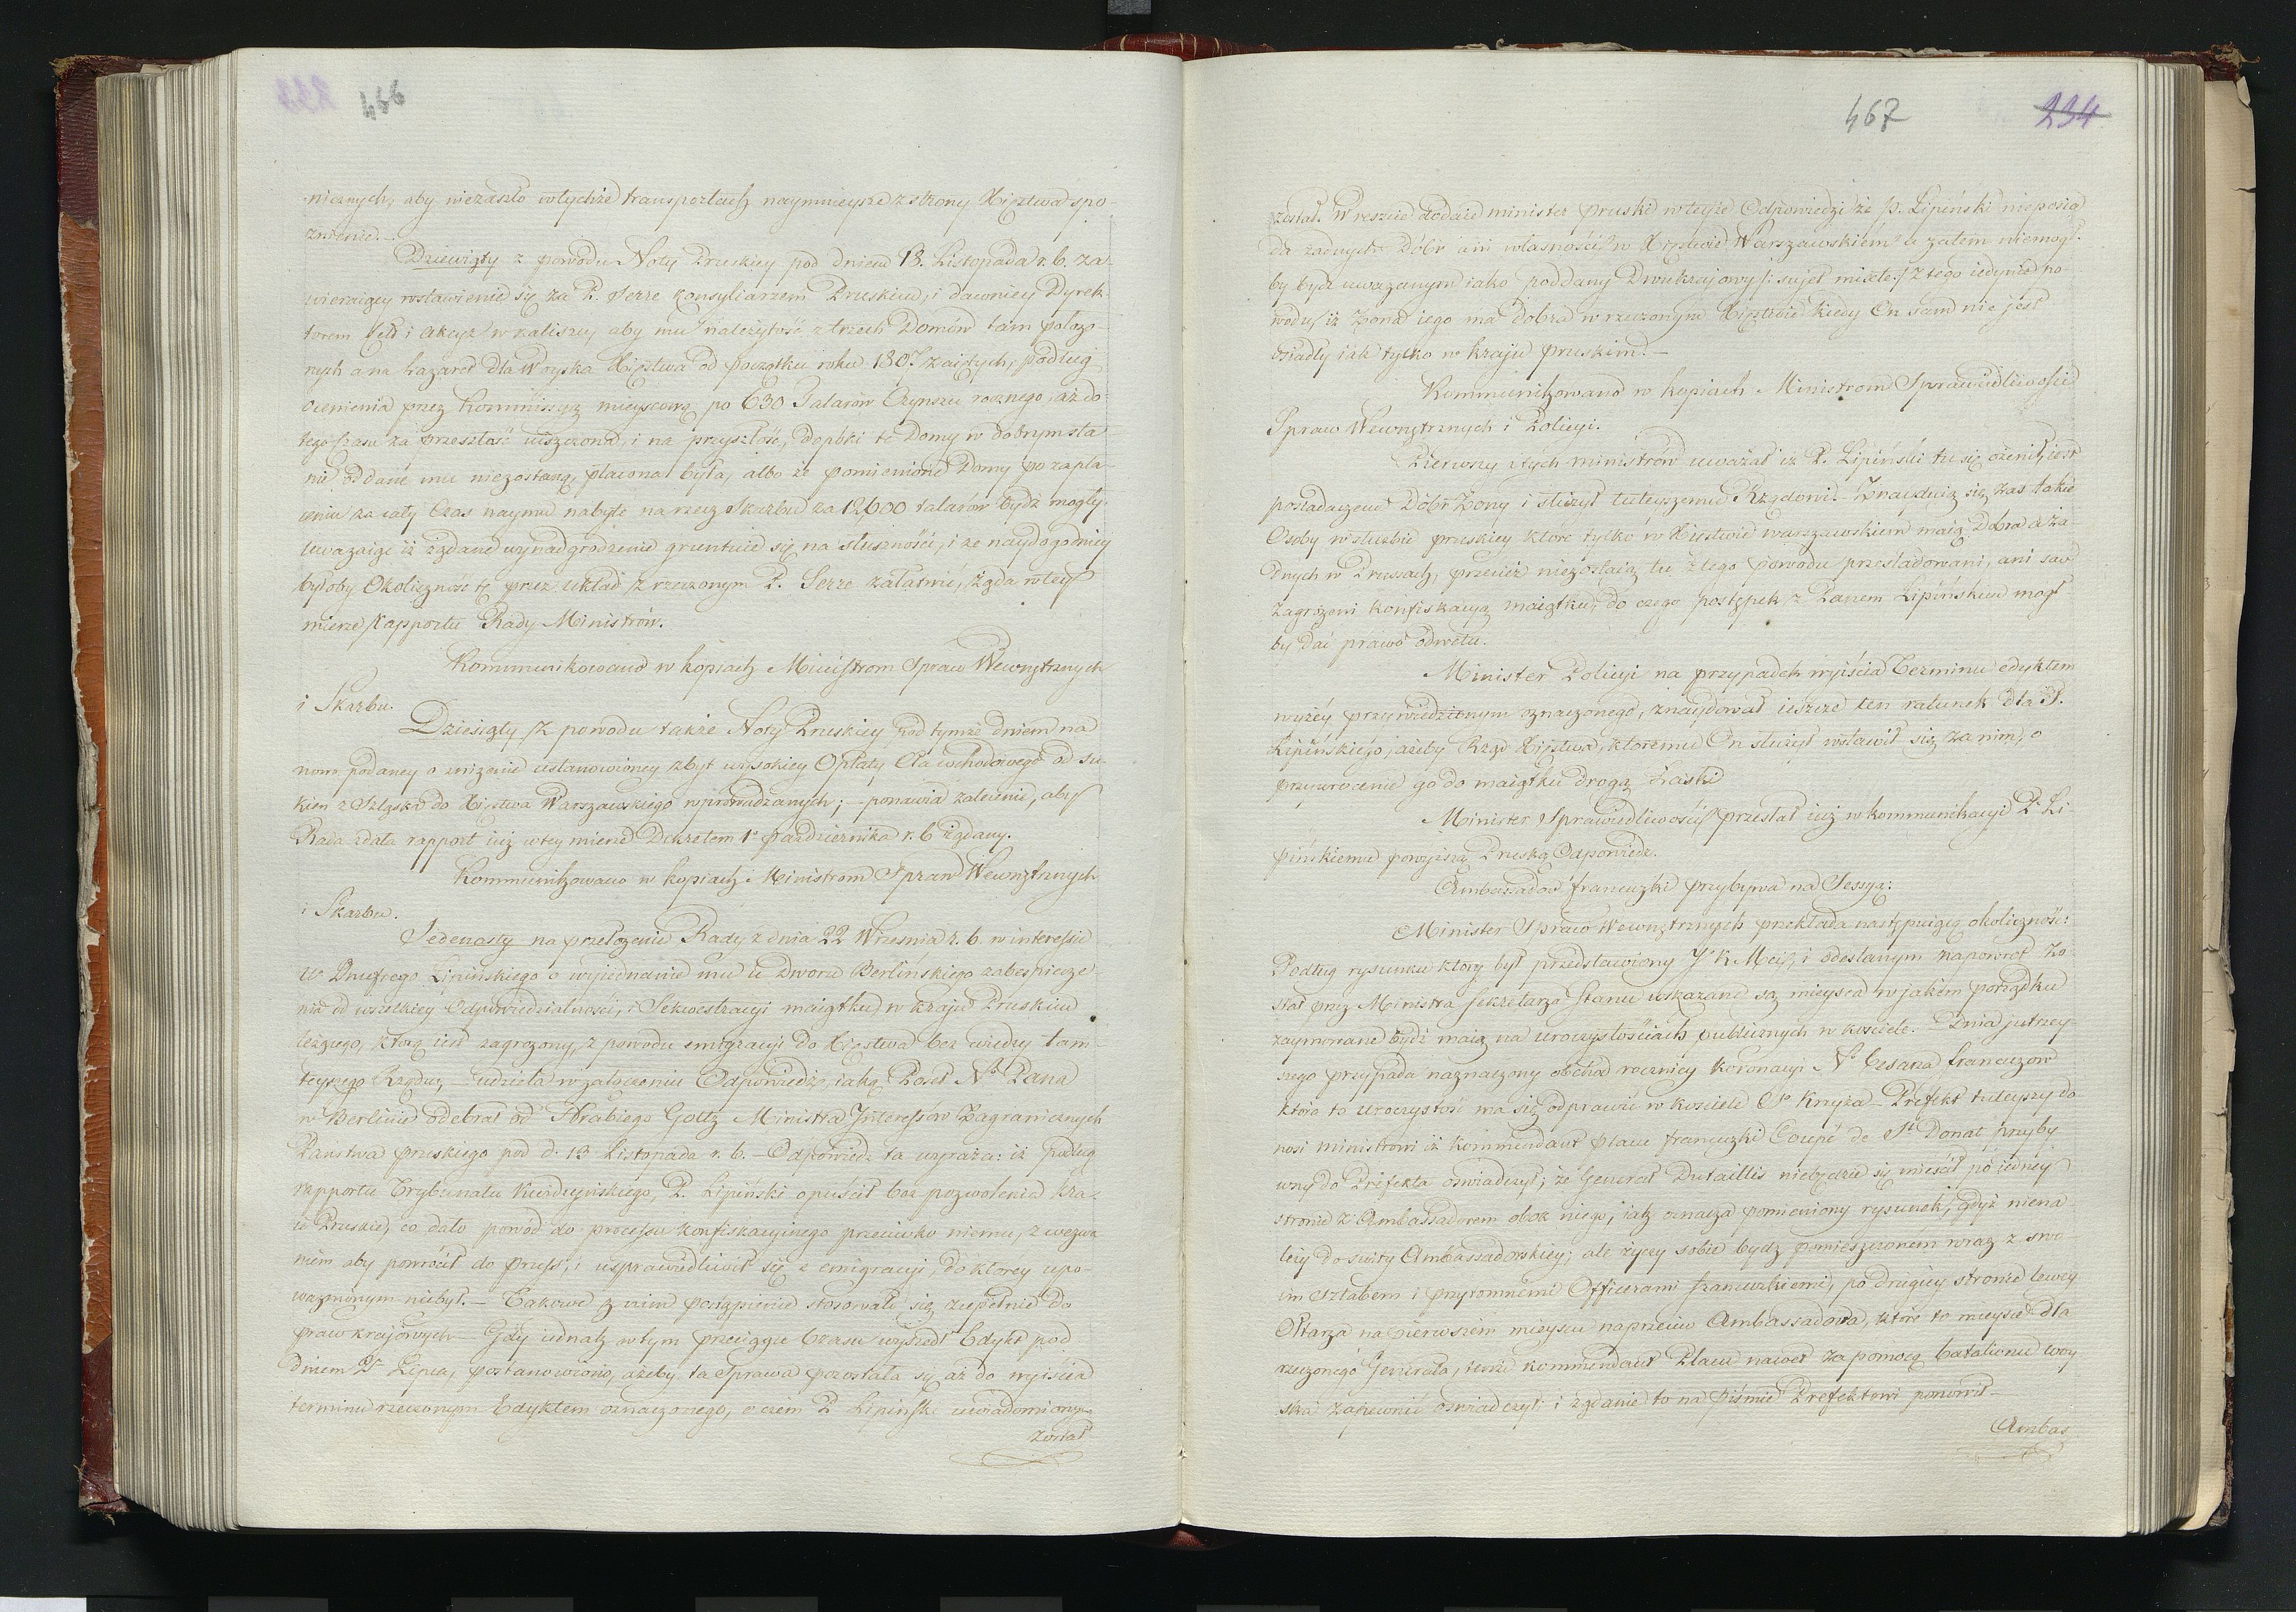 466
nicznych, aby niezaszło wtychże transportach naymnieysze z strony Xięztwa spo-
znienie.-
Dziewiąty z powodu Noty Pruskiey pod dniem 13. Listopada r. b. za-
wieraiącey wstawienie się za P. Serre Konsyliarzem Pruskim, i dawniey Dyrek-
torem Ceł i Akcyz w Kaliszu, aby mu należytość z trzech Domów tam położo-
nych a na Lazaret dla Woyska Xięztwa od początku roku 1807 zaiętych, podług
ocenienia przez Kommissyą mieyscową po 630 Talarów Czynszu rocznego, aż do-
tego czasu za przeszłość uiszczona, i na przyszłość, dopóki te Domy w dobrym sta-
nie oddane mu niezostaną, płacona była, albo że pomienione Domy po zapła-
ceniu za cały Czas naymu nabyte na rzecz Skarbu za 12,600 talarów bydź mogły.
Uważaiąc iż żądane wynadgrodzenie gruntuie się na słuszności, i że naydogodniey
byłoby Okoliczność tę przez układ z rzeczonym P. Serre załatwić, żąda wtey
mierze Rapportu Rady Ministrów.
Kommunikowano w kopiach Ministrom Spraw Wewnętrznych
i Skarbu.
Dziesiąty z powodu także Noty Pruskiey pod tymże dniem na
nowo podaney o zniżenie ustanowioney zbyt wysokiey Opłaty Cła wchodowego od su-
kien z Szląska do Xięstwa Warszawskiego wprowadzanych; - ponawia zalecenie, aby
Rada zdała rapport iuż wtey mierze Dekretem 1º Października r. b. żądany.
Kommunikowano w kopiach Ministrom Spraw Wewnętrznych
i Skarbu.
Jedenasty na przełożenie Rady z dnia 22 Września r. b. w interessie
Ur Onufrego Lipińskiego o wyiednanie mu u Dworu Berlińskiego zabespiecze-
nia od wszelkiey Odpowiedzialności, i Sekwestracyi maiątku w kraiu Pruskim
leżącego, którą iest zagrożony, z powodu emigracyi do Xięstwa bez wiedzy tam-
teyszego Rządu; - udziela w załączeniu Odpowiedź, iaką Poseł Nº Pana
w Berlinie odebrał od Hrabiego Goltz Ministra Interessów Zagranicznych
Państwa pruskiego pod d. 13 Listopada r. b. - Odpowiedź ta wyraża: iż podług
rapportu Trybunału Kwidzyńskiego, P. Lipiński opuścił bez pozwolenia kra-
ie Pruskie, co dało powód do processu konfiskacyinego przeciwko niemu, z wezwa-
niem aby powrócił do Pruss, i usprawiedliwił się z emigracyi, do którey upo-
ważnionym niebył. - Takowe z nim postąpienie stosowało się zupełnie do
praw kraiowych - Gdy iednak wtym przeciągu Czasu wyszedł Edykt pod
dniem 2º Lipca, postanowiono, ażeby ta Sprawa pozostała się aż do wyiścia
terminu rzeczonym Edyktem oznaczonego, o czem P. Lipiński uwiadomionym
został
467
234
został. W reszcie dodaie minister pruski wteyże Odpowiedzi że P. Lipiński nieposia-
da żadnych Dóbr ani własności w Xięstwie Warszawskiém a zatem niemógł-
by bydź uważanym iako poddany Dwukraiowy /: sujet mixte:/ z tego iedynie po-
wodu, iż Żona iego ma dobra w rzeczonym Xięztwie kiedy On sam nie jest
osiadły iak tylko w kraju pruskim. -
Kommunikowano w kopiach Ministrom Sprawiedliwości
Spraw Wewnętrznych i Policyi.
Pierwszy z tych ministrów uważał iż P. Lipiński tu się ożenił, iest
posiadaczem Dóbr Żony i służył tuteyszemu Rządowi. - Znayduią się zaś takie
Osoby w służbie pruskiey które tylko w Xięstwie warszawskim maią Dobra a ża-
dnych w Prussach, przecież niezostaią tu z tego powodu prześladowani, ani są
zagrożeni konfiskacyą maiątku, do czego postępek z Panem Lipińskim mógł-
by dać prawo odwetu.
Minister Policyi na przypadek wyiścia Terminu edyktem
wyżéy przywiedzionym oznaczonego, znaydował ieszcze ten ratunek dla P.
Lipińskiego, ażeby Rząd Xięstwa, któremu On służył wstawił się za nim, o
przywrócenie go do maiątku drogą Łaski
Minister Sprawiedliwości przesłał iuż w kommunikacyi P. Li-
pińskiemu powyższą Pruską Odpowiedź.
Ambassador francuzki przybywa na Sessyą:
Minister Spraw Wewnętrznych przekłada następuiącą okoliczność:
Podług rysunku który był przedstawiony J. K. Mci, i odesłanym napowrót zo-
stał przez Ministra Sekretarza Stanu wskazane są mieysca w jakim porządku
zaymowane bydź maią na uroczystościach publicznych w kościele. Dnia jutrzey-
szego przypada naznaczony obchód rocznicy Koronacyi Nº Cesarza francuzów
która to uroczystość ma się odprawić w kościele Sº Krzyża - Prefekt tuteyszy do-
nosi ministrowi iż kommendant placu francuzki Coupé de St Donat przyby-
wszy do Prefekta oświadczył; że Generał Dutaillis niebędzie się mieścił po iedney
stronie z Ambassadorem obok niego, iak oznacza pomieniony rysunek, gdyż niena-
leży do świty Ambassadorskiey; ale życzy sobie bydź pomieszczonem wraz z swo-
im sztabem i przytomnémi Officerami francuzkiemi, po drugiey stronie lewey
Ołtarza na pierwszém mieyscu naprzeciw Ambassadora, które to mieysce dla
rzeczonego Generała, tenże kommendant Placu nawet za pomocą batalionu woy-
ska zapewnić oświadczył i żądanie to na piśmie Prefektowi ponowił -
Ambas